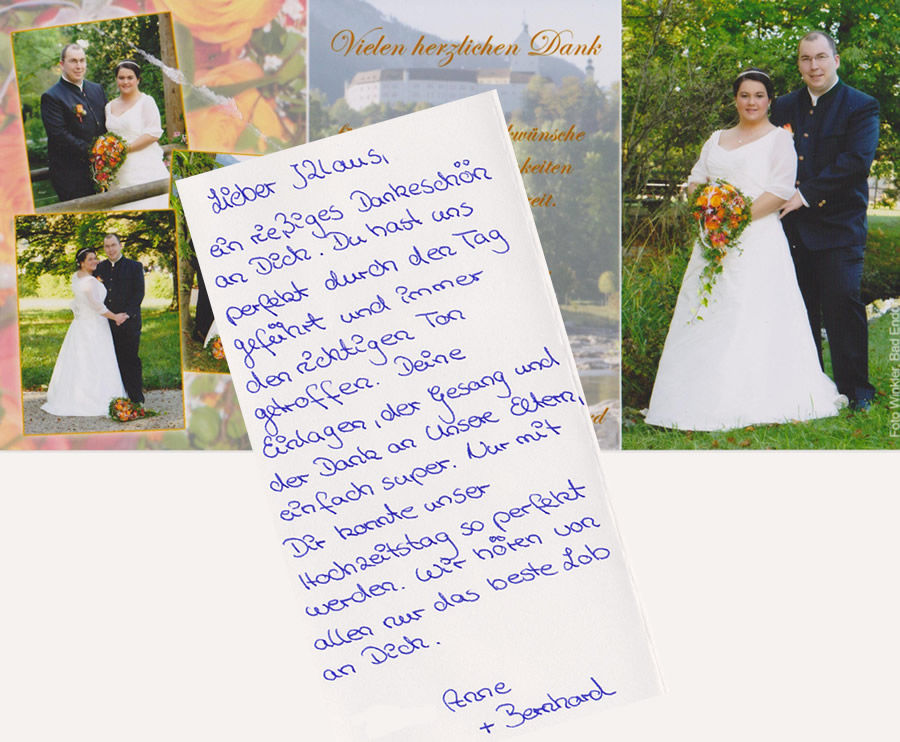 Vielen herzlichen Dank
wünsche
keiten
eit.
Lieber Klaus,
ein rießiges Dankeschön
an Dich. Du hast uns
perfekt durch den Tag
geführt und immer
den richtigen Ton
getroffen. Deine
Einlagen, der Gesang und
der Dank an Unsere Eltern,
einfach super. Nur mit
Dir konnte unser
Hochzeitstag so perfekt
werden. Wir hören von
allen nur das beste Lob
an Dich.
Anne
+ Bernhard
Foto Winkler, Bad End